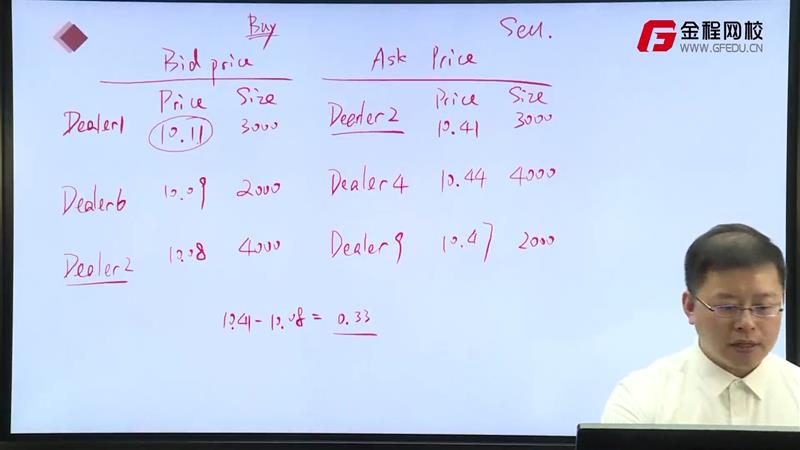 Buy Sell.
金程网校
WWW.GFEDU.CN
Bid price Ask Price
Price Size Price Size
Dealer1 10.11 3000 Dealer2 10.41 3000
Dealer6 10.09 2000 Dealer4 10.44 4000
Dealer2 10.08 4000 Dealer9 10.47 2000
10.41-10.08=0.33